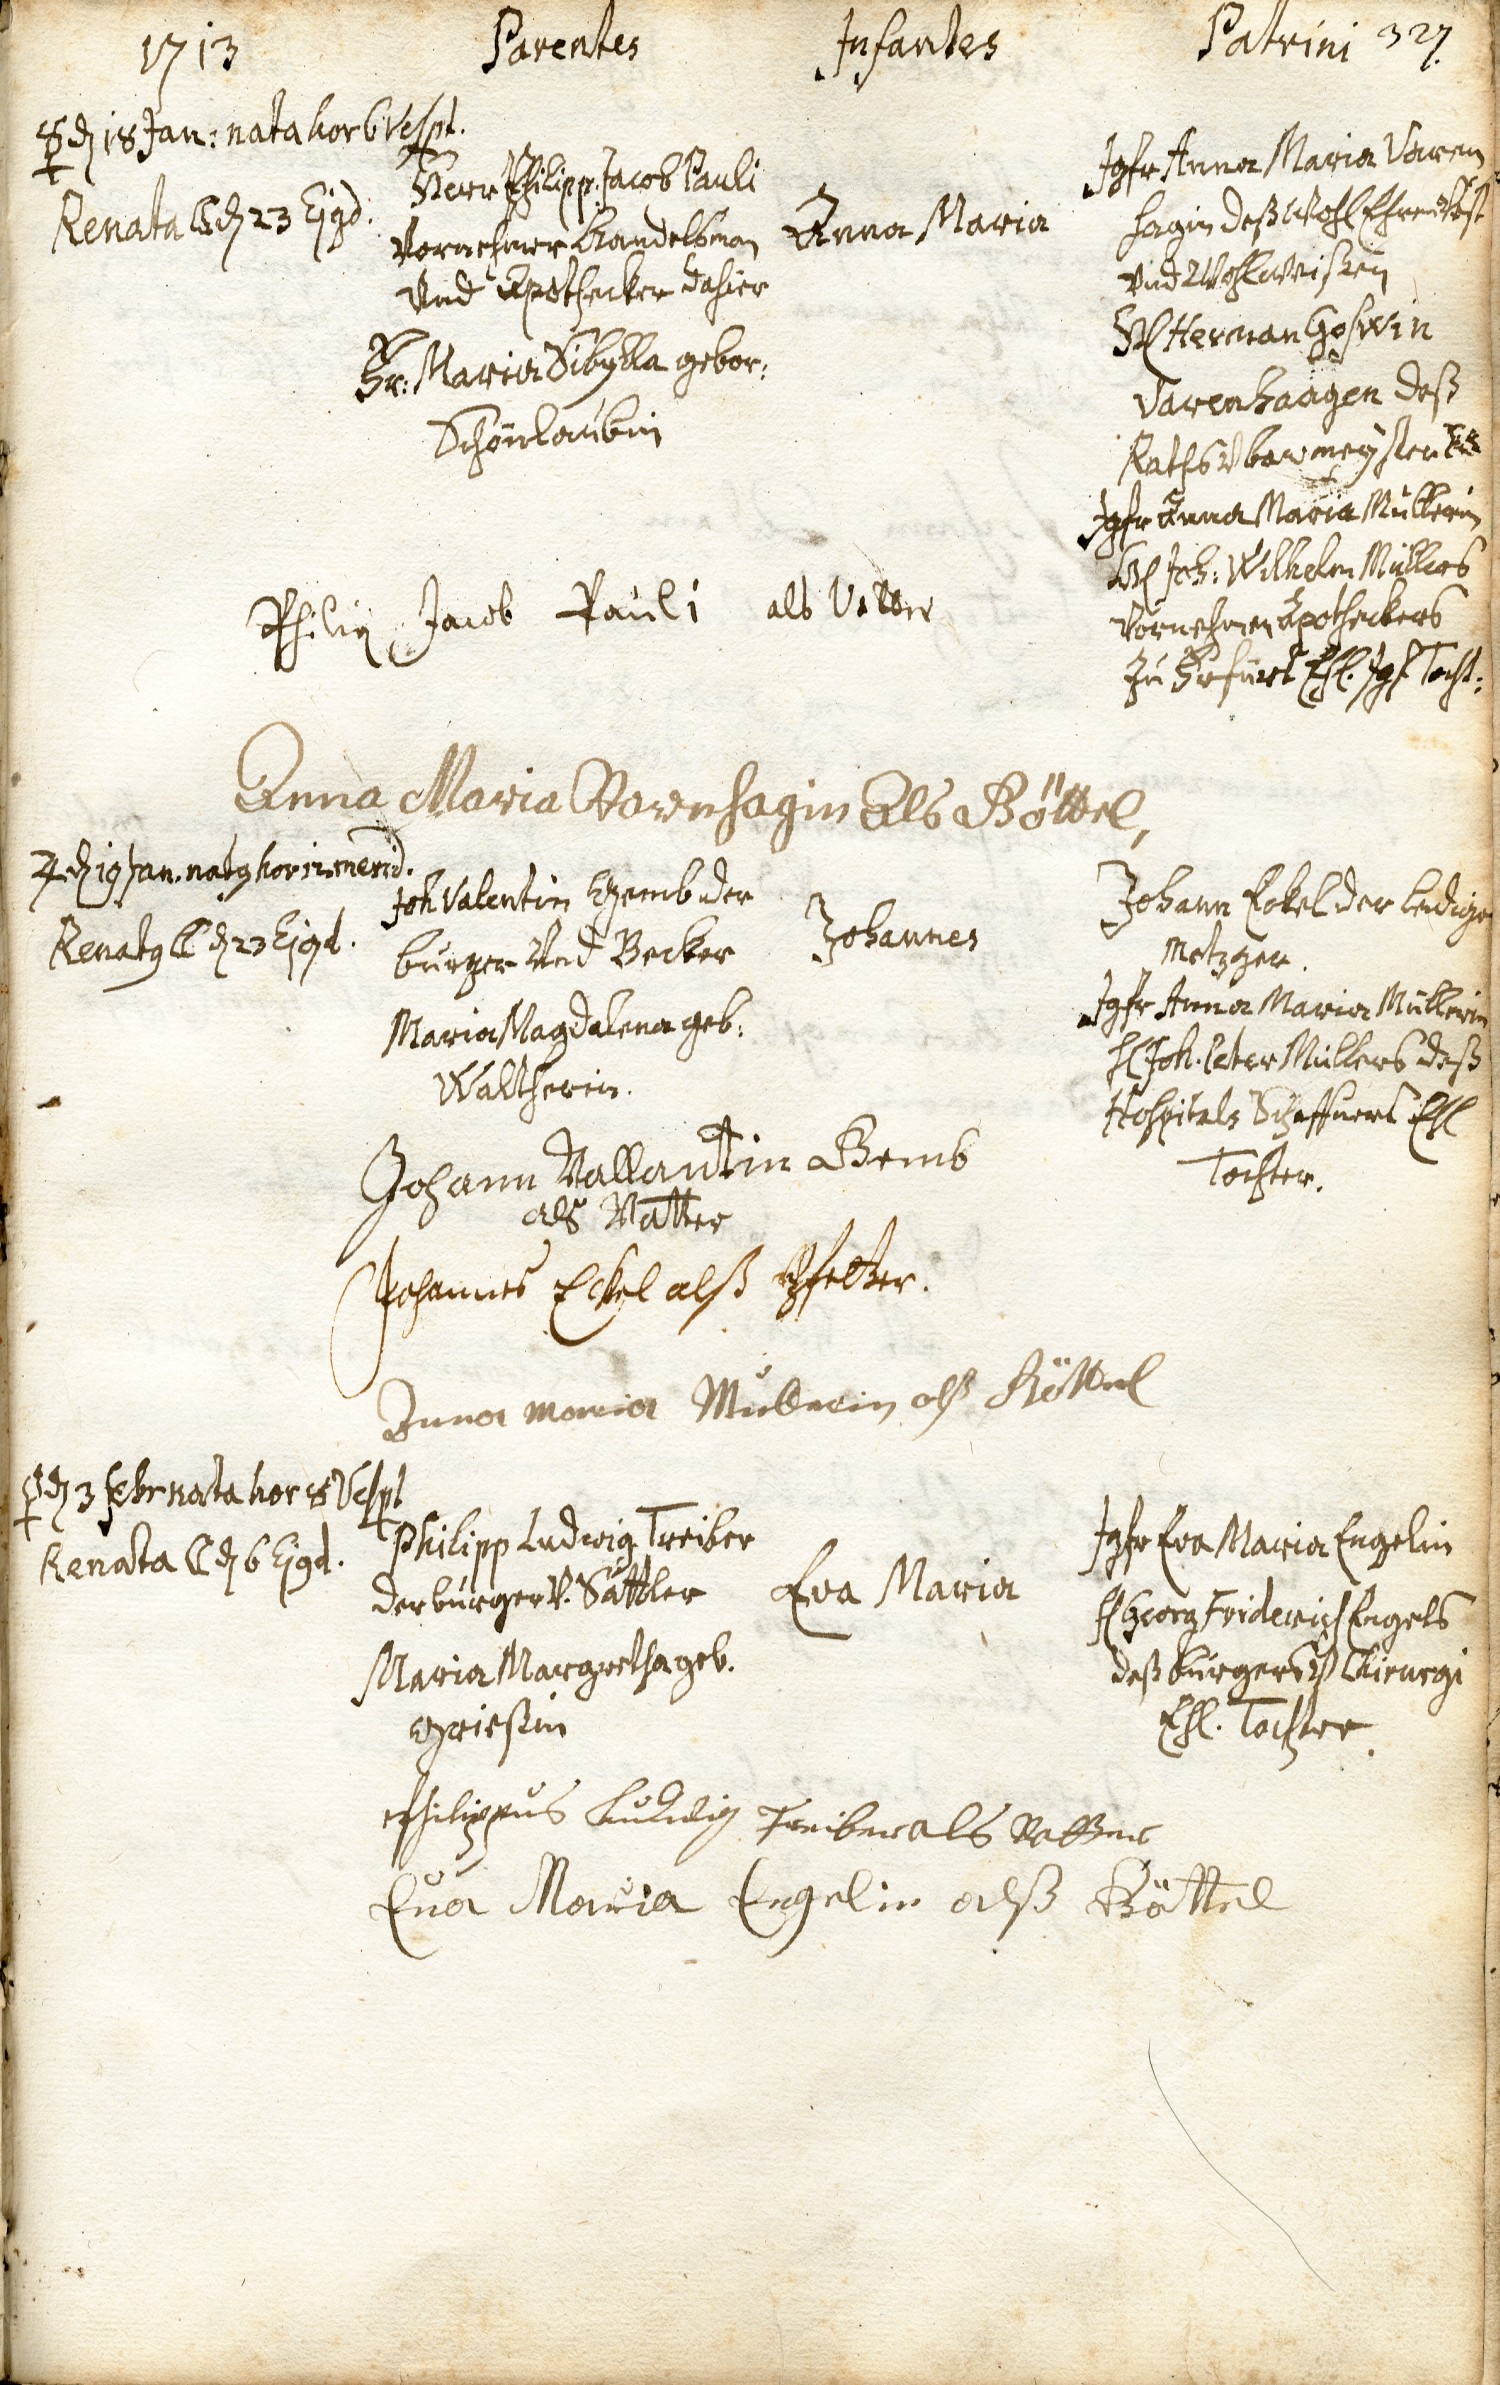 1713 Parentes Infantes Patrini 327.
☿ d 18 Jan: nata hor 6 Vesp̃t.
Renata ☾ d 23 Ejgd.
Herr Philipp Jacob Pauli
Vornehmer Handelsman
Vnd Apothecker dahier
Fr: Maria Sibylla gebor:
Schönlaubin
Anna Maria
Jgfr Anna Maria Varen
hagin deß Wohl Ehrenvest
Vnd Wohlweißen
H Herman Goßwin
Varenhaagen deß
Raths V bawmeyster
Jgfr Anna Maria Müllerin
H Joh: Wilhelm Müllers
Vornehmen Apotheckers
zu Erfurt Ehl. Jgf. Tocht:
Philip Jacob Pauli als Vatter
Anna Maria Varnhagin Als Göttel,
♃ d 19 Jan. natg hor 12 merid.
Renatg ☾ d 23 Ejgd.
Joh Valentin Gemb der
burger Vnd Becker
Maria Magdalena geb:
Waltherin.
Johannes
Johann Eckel der ledige
Metzger.
Jgfr Anna Maria Müllerin
H Joh. Peter Müllers deß
Hospitals Schaffners Ehl
Tochter.
Johann Vallantin Gemb
als Vatter
Johannes Eckel alß Pfetter.
Anna maria Müllerin alß Göttel
♀ d 3 febr nata hor 8 Vesp̃t
Renata ☾ d 6 Ejgd.
Philipp Ludwig Treiber
der burger V. Sattler
Maria Margretha geb.
Grießin
Eva Maria
Jgfr Eva Maria Engelin
H Georg Friderich Engels
deß burgers V Chirurgi
Ehl. Tochter.
Philippus Ludwig Treiber als Vatter
Eua Maria Engelin alß Göttel